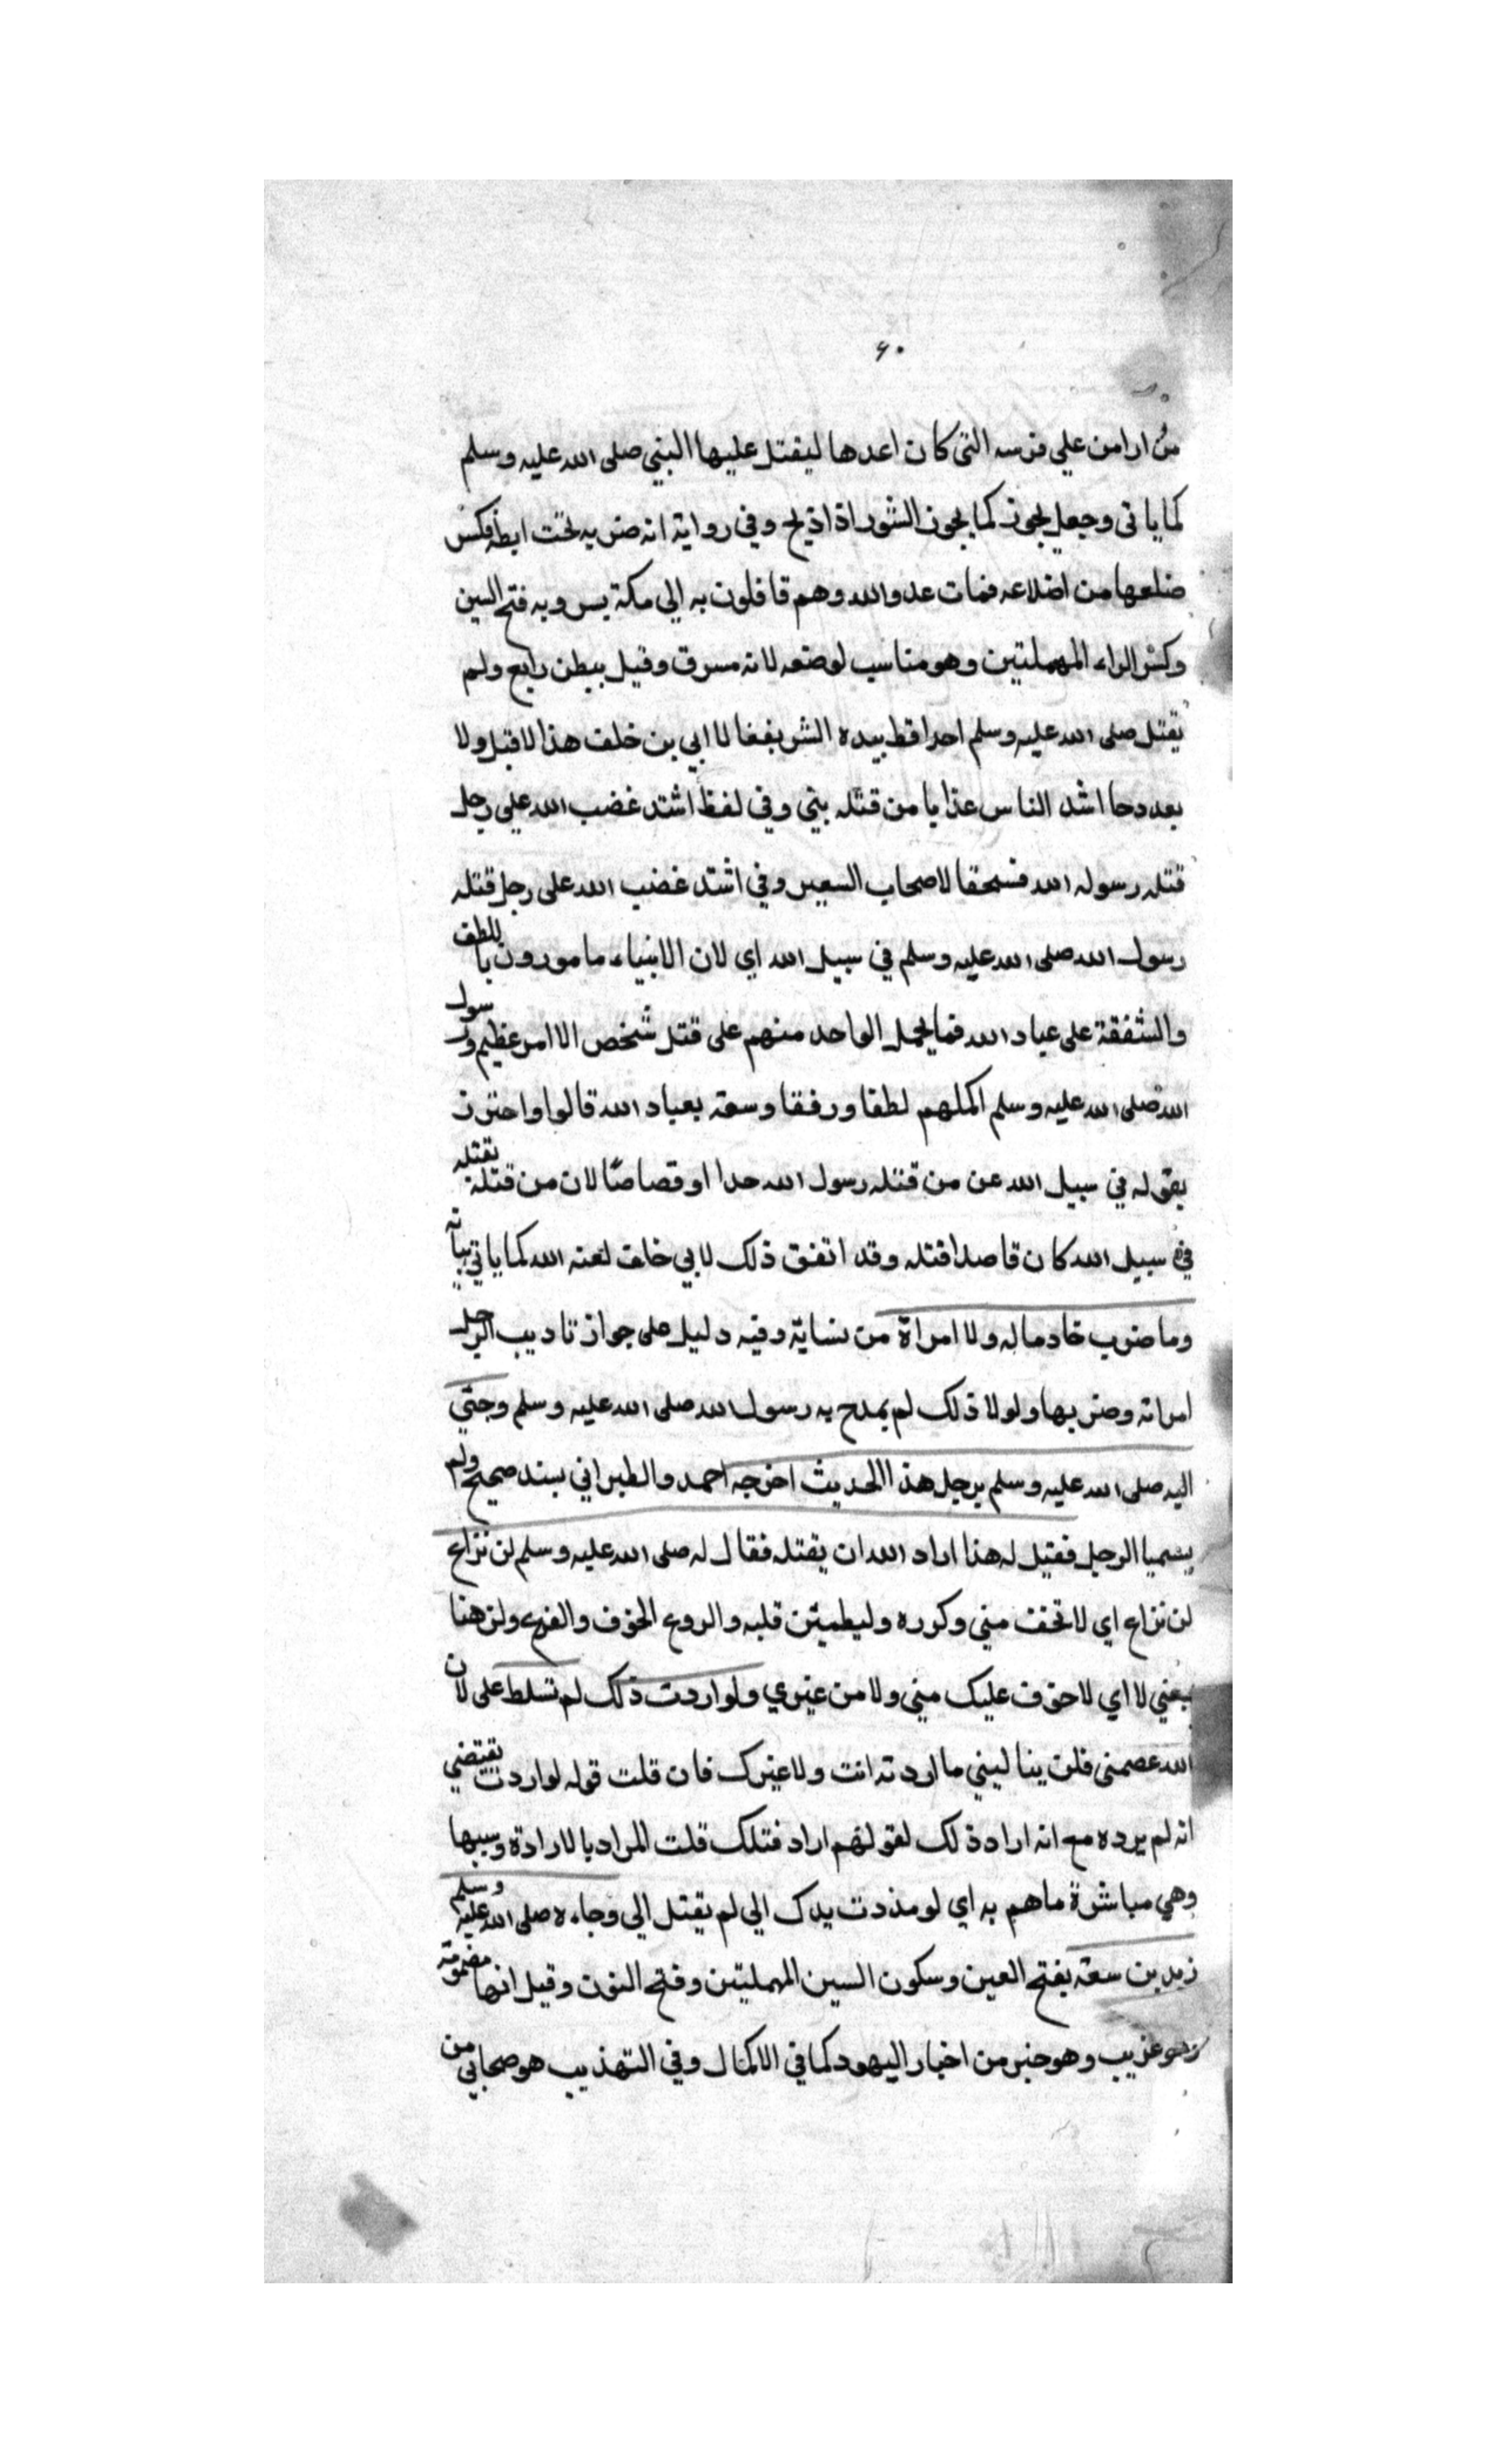 ٦٠
مرارا من علي فرسه التي كان اعدها ليقتل عليها النبي صلى الله عليه وسلم
كما ياتي وجعل يخور كما يخور الثور اذا ذبح وفي رواية انه ضربه تحت ابطه فكسر
ضلعها من اضلاعه فمات عدو الله وهم قافلون به الي مكة بسر وبه فتح السين
وكسر الراء المهملتين وهو مناسب لوصفه لانه مسرف وقيل ببطن رابغ ولم
يقتل صلى الله عليه وسلم احدا قط بيده الشريفة الا ابي بن خلف هذا لا قبل ولا
بعد وجا اشد الناس عذابا من قتله نبي وفي لفظ اشتد غضب الله علي رجل
قتله رسول الله فسحقا لاصحاب السعير وفي اشتد غضب الله على رجل قتله
رسول الله صلى الله عليه وسلم في سبيل الله اي لان الانبياء مامورون باللطف
والشفقة على عباد الله فما يحمل الواحد منهم على قتل شخص الا امر عظيم ورسول
الله صلى الله عليه وسلم اكملهم لطفا ورفقا وسعة بعباد الله قالوا واحترز
بقوله في سبيل الله عن من قتله رسول الله حدا او قصاصًا لان من قتله يقتله
في سبيل الله كان قاصدا قتله وقد اتفق ذلك لابي خلف لعنه الله كما ياتي بيانه
وما ضرب خادما له ولا امراة من نسايه وفيه دليل على جواز تاديب الرجل
امراته وضربها ولولا ذلك لم يمدح به رسول الله صلى الله عليه وسلم وجئي
اليه صلى الله عليه وسلم برجل هذا الحديث اخرجه احمد والطبراني بسند صحيح ولم
يسميا الرجل فقيل له هذا اراد الله ان يقتله فقال له صلى الله عليه وسلم لن تراع
لن تراع اي لا تخف مني وكرره وليطمئن قلبه والروع الخوف والفزع ولن هنا
بمعني لا اي لا خوف عليك مني ولا من غيري ولو اردت ذلك لم تسلط على لان
الله عصمني فلن ينا ليني ما اردته انت ولا غيرك فان قلت قوله لو اردت يقتضي
انه لم يرده مع انه اراد ذلك لقولهم اراد قتلك قلت المراد بالارادة وسببها
وهي مباشرة ما هم به اي لو مددت يدك الي لم يقتل الي وجاءه صلى الله عليه وسلم
زيد بن سعنة بفتح العين وسكون السين المهملتين وفتح النون وقيل انها مضمومة
وهو غريب وهو حبر من احبار اليهود كما في الاكمال وفي التهذيب هو صحابي من